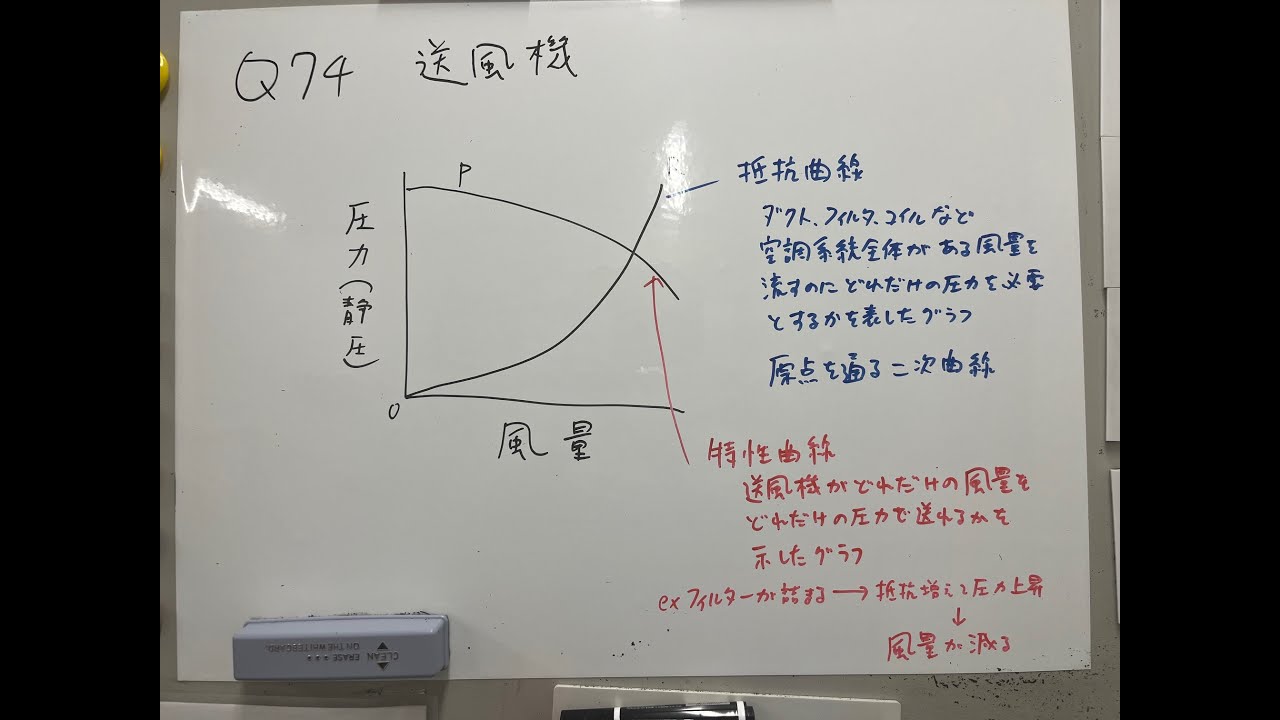 Q74 送風機
P
圧力(静圧)
O
風量
抵抗曲線
ダクト、フィルタ、コイルなど
空調系統全体がある風量を
流すのにどれだけの圧力を必要
とするかを表したグラフ
原点を通る二次曲線
特性曲線
送風機がどれだけの風量を
どれだけの圧力で送れるかを
示したグラフ
ex フィルターが詰まる→抵抗増えて圧力上昇
↓
風量が減る
CLEAN ERASE
ON THE WHITEBOARD.